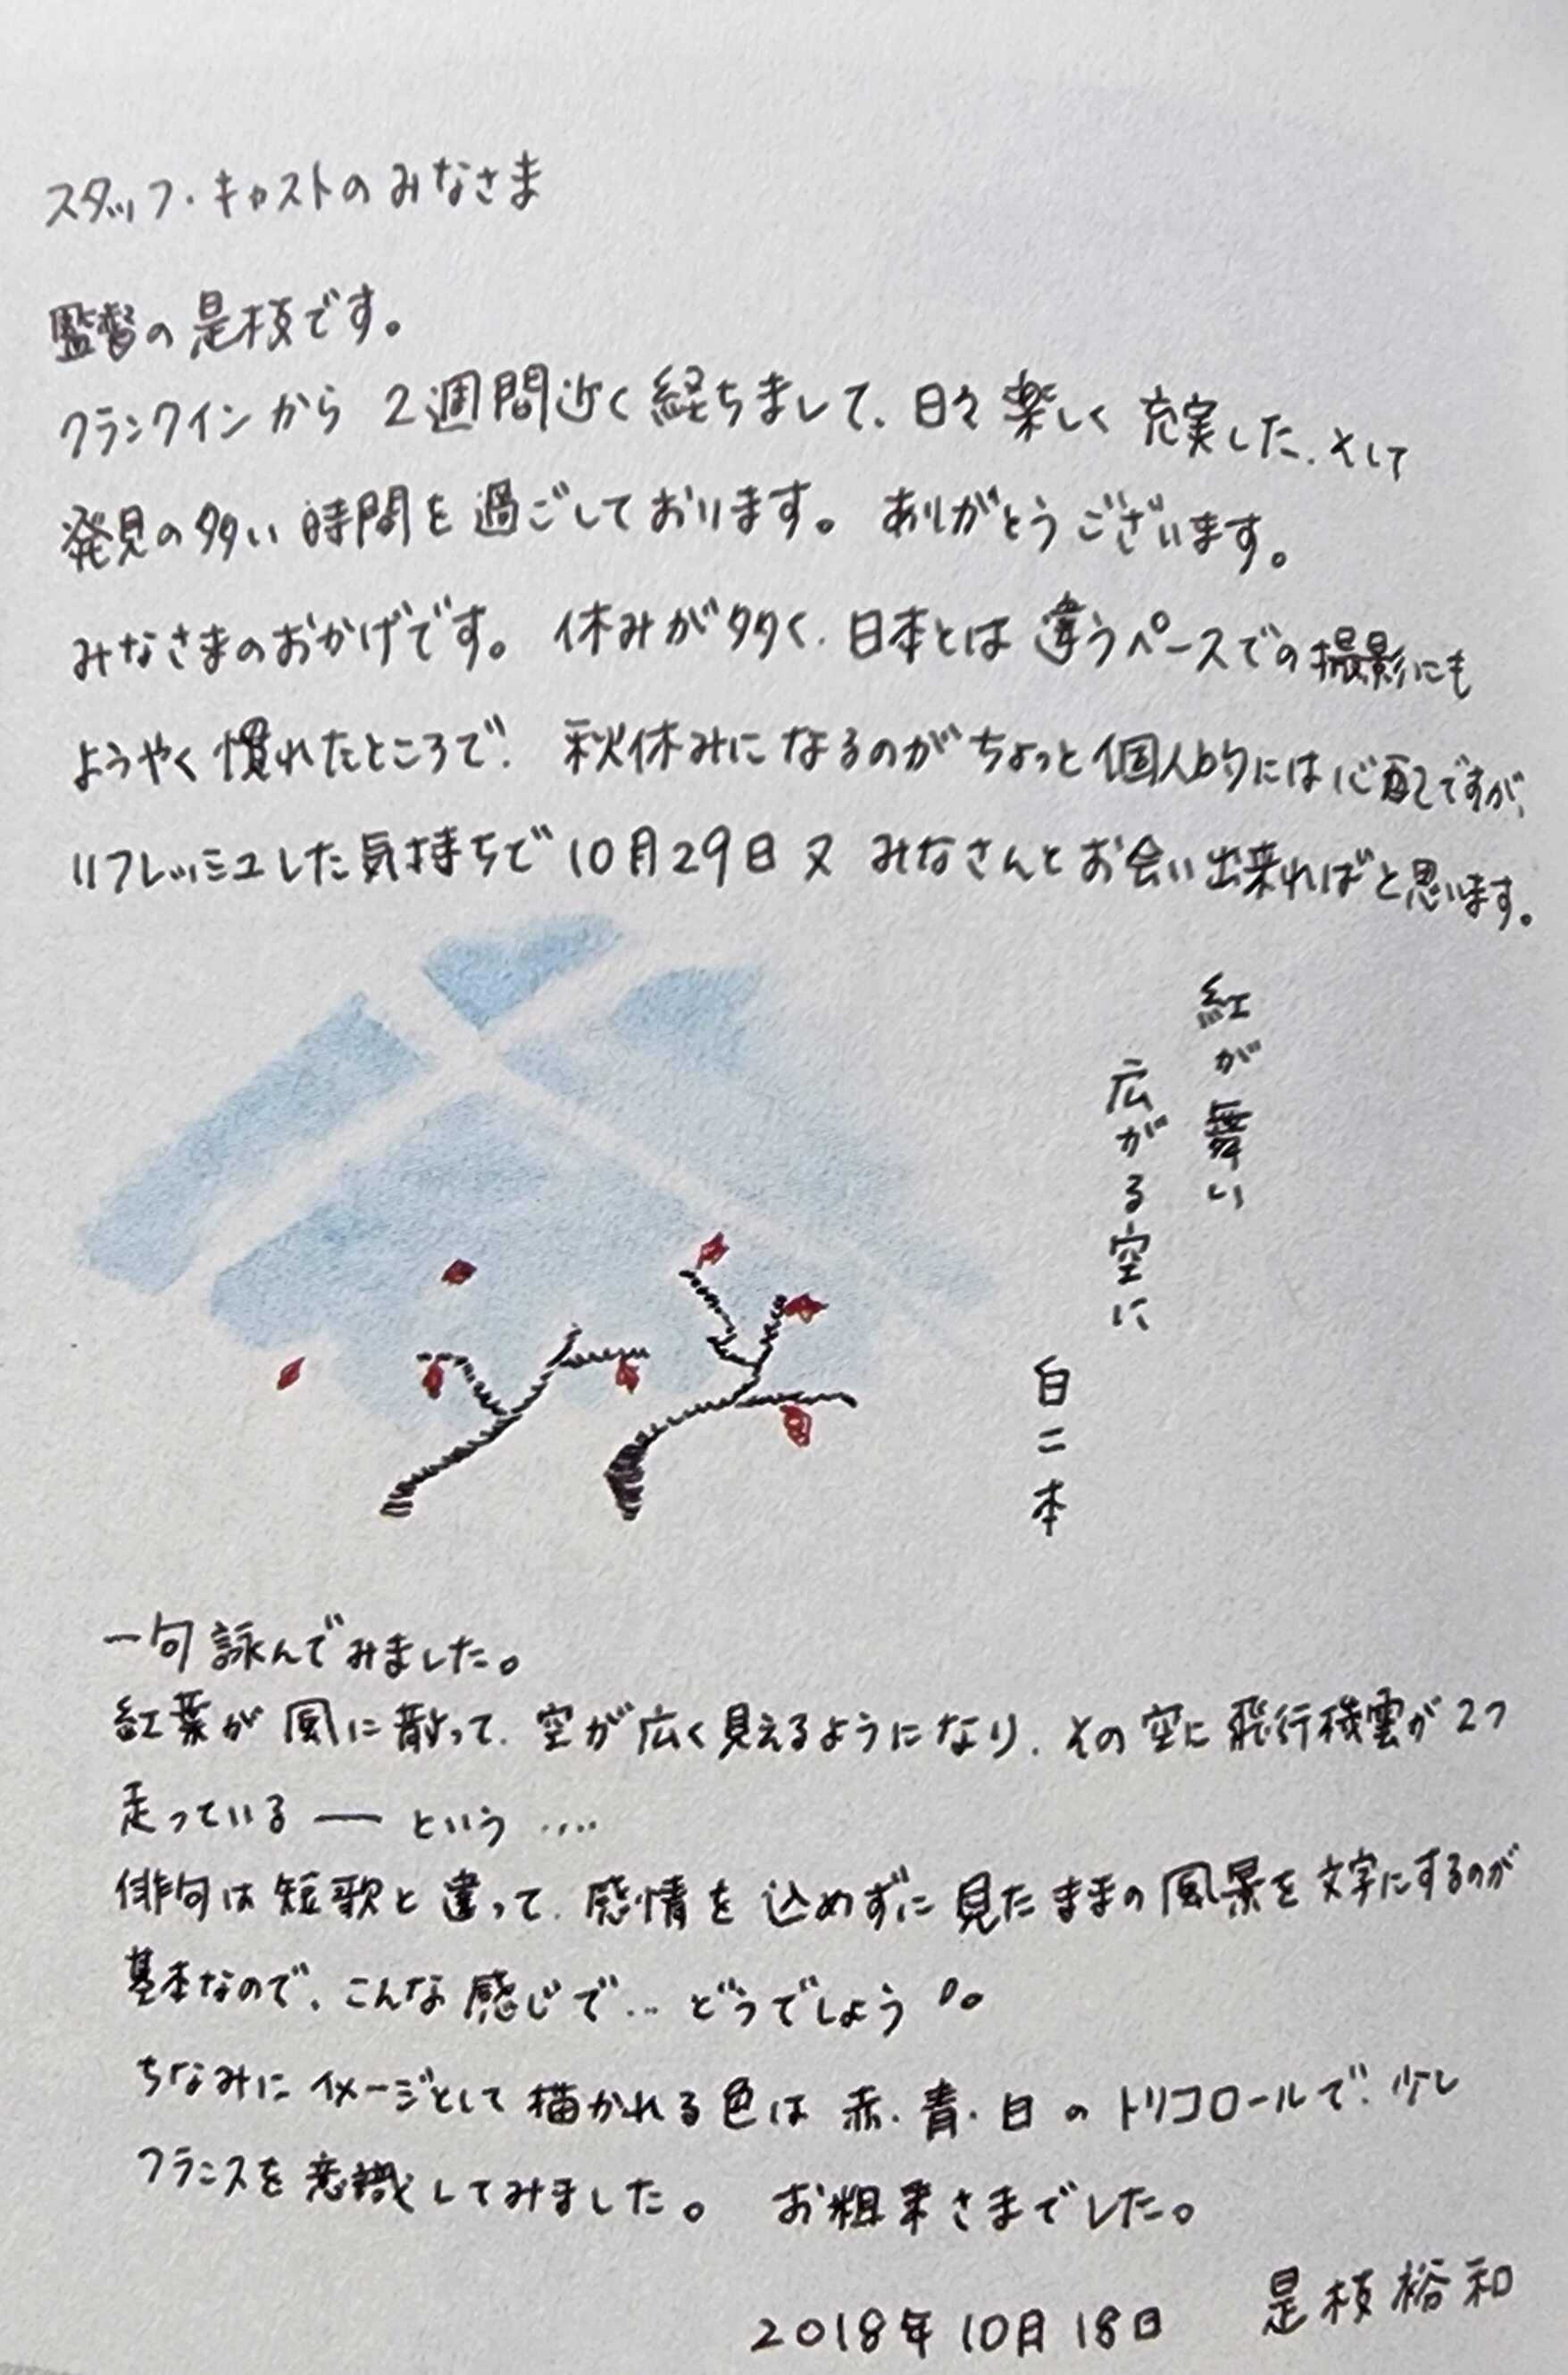 スタッフ・キャストのみなさま
監督の是枝です。
クランクインから 2週間近く経ちまして、日々楽しく 充実した、そして
発見の多い 時間を 過ごしております。 ありがとうございます。
みなさまのおかげです。 休みが多く、日本とは 違うペースでの撮影にも
ようやく慣れたところで、 秋休みになるのがちょっと個人的には心配ですが、
リフレッシュした気持ちで 10月29日 又 みなさんとお会い出来ればと思います。
紅が舞い
広がる空に
白二本
一句詠んでみました。
紅葉が 風に散って、空が広く見えるようになり、その空に飛行機雲が2つ
走っている ― という ‥‥
俳句は短歌と違って、感情を 込めずに 見たままの風景を文字にするのが
基本なので、こんな感じで… どうでしょう。
ちなみに イメージとして 描かれる色は 赤・青・白のトリコロールで、少し
フランスを意識してみました。 お粗末さまでした。
2018年10月18日 是枝裕和